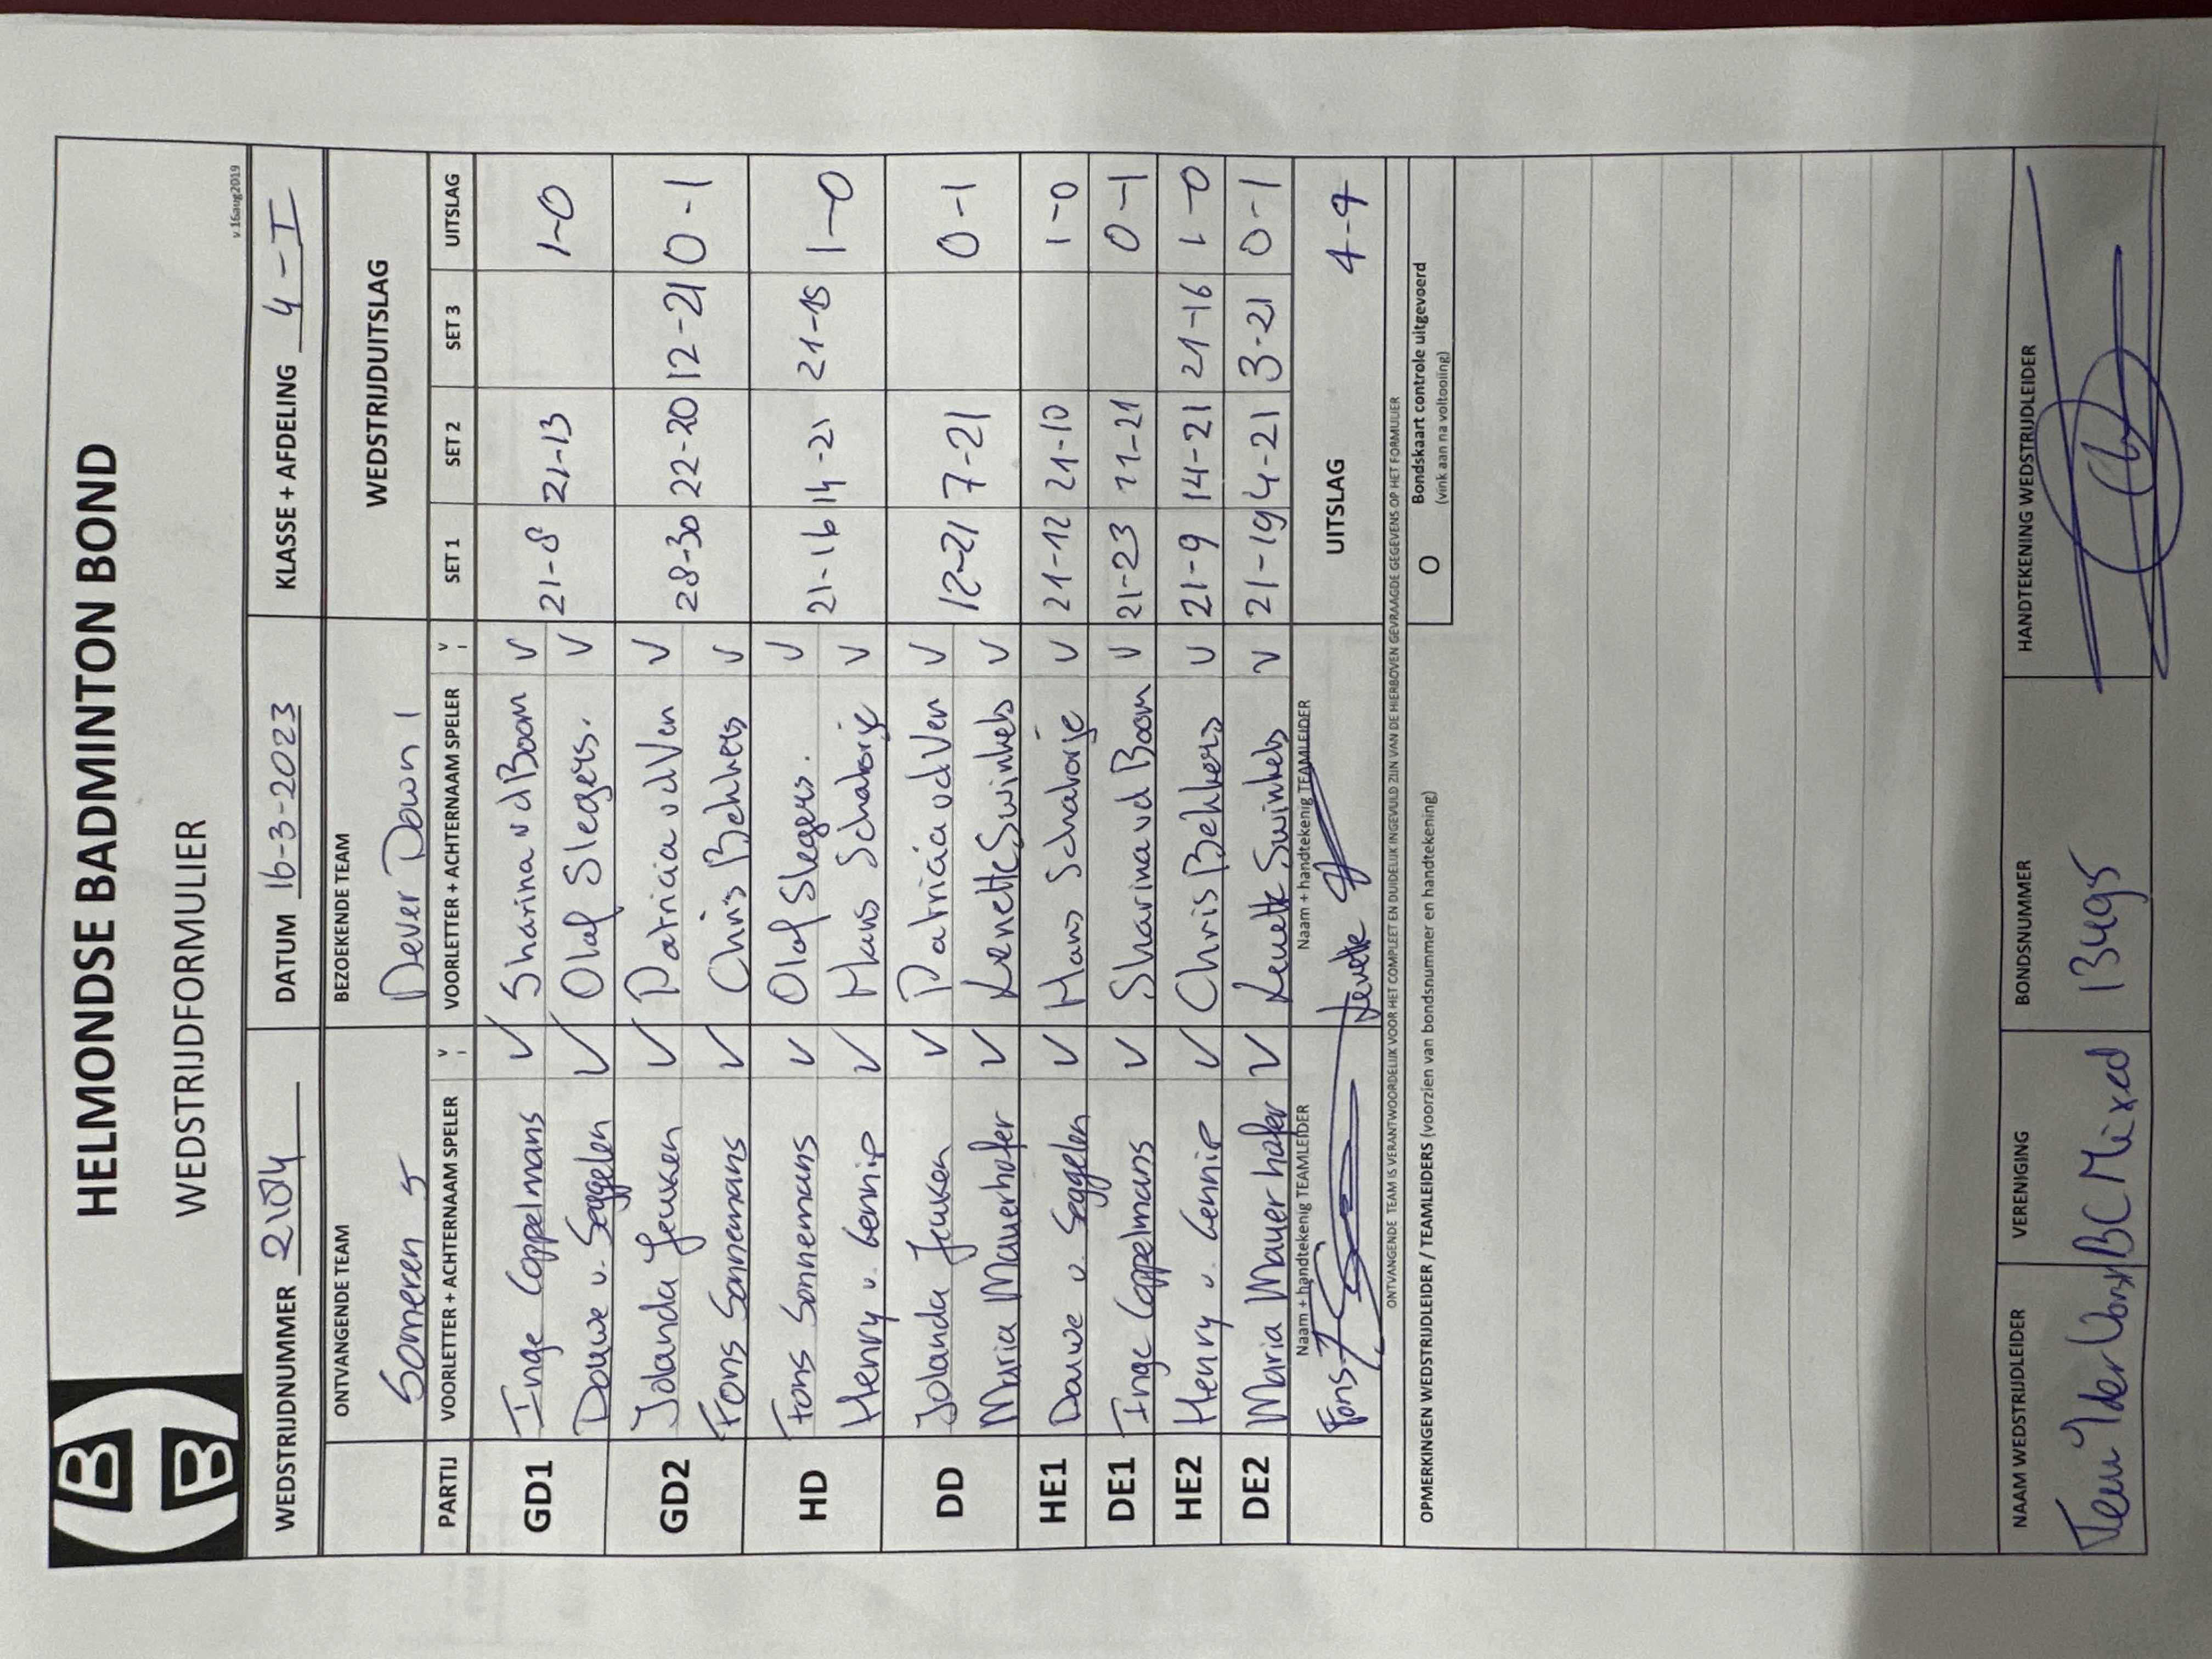 HELMONDSE BADMINTON BOND
WEDSTRIJDFORMULIER
v.16aug2019
WEDSTRIJDNUMMER 2104 DATUM 16-3-2023 KLASSE + AFDELING 4 - I
ONTVANGENDE TEAM BEZOEKENDE TEAM WEDSTRIJDUITSLAG
Someren 5 Never Down 1
PARTIJ VOORLETTER + ACHTERNAAM SPELER V VOORLETTER + ACHTERNAAM SPELER V SET 1 SET 2 SET 3 UITSLAG
GD1 Inge Coppelmans V Sharina v d Boom V 21-8 21-13 1-0
Douwe v. Seggelen V Olaf Slegers. V
GD2 Jolanda Jeuken V Patricia v d Ven V 28-30 22-20 12-21 0-1
Fons Sonnemans V Chris Bekkers V
HD Fons Sonnemans V Olaf Slegers. V 21-16 14-21 21-15 1-0
Henry v. Gennip V Hans Schalorije V
DD Jolanda Jeuken V Patricia v d Ven V 12-21 7-21 0-1
Maria Mauerhofer V Lenette Swinkels V
HE1 Douwe v. Seggelen V Hans Schalorije V 21-12 21-10 1-0
DE1 Inge Coppelmans V Sharina v d Boom V 21-23 11-21 0-1
HE2 Henry v. Gennip V Chris Bekkers V 21-9 14-21 21-16 1-0
DE2 Maria Mauerhofer V Lenette Swinkels V 21-19 4-21 3-21 0-1
Naam + handtekenig TEAMLEIDER Naam + handtekenig TEAMLEIDER UITSLAG 4-4
Fons Lenette
ONTVANGENDE TEAM IS VERANTWOORDELIJK VOOR HET COMPLEET EN DUIDELIJK INGEVULD ZIJN VAN DE HIERBOVEN GEVRAAGDE GEGEVENS OP HET FORMULIER
OPMERKINGEN WEDSTRIJDLEIDER / TEAMLEIDERS (voorzien van bondsnummer en handtekening) O Bondskaart controle uitgevoerd
(vink aan na voltooiing)
NAAM WEDSTRIJDLEIDER VERENIGING BONDSNUMMER HANDTEKENING WEDSTRIJDLEIDER
BC Mixed 13495